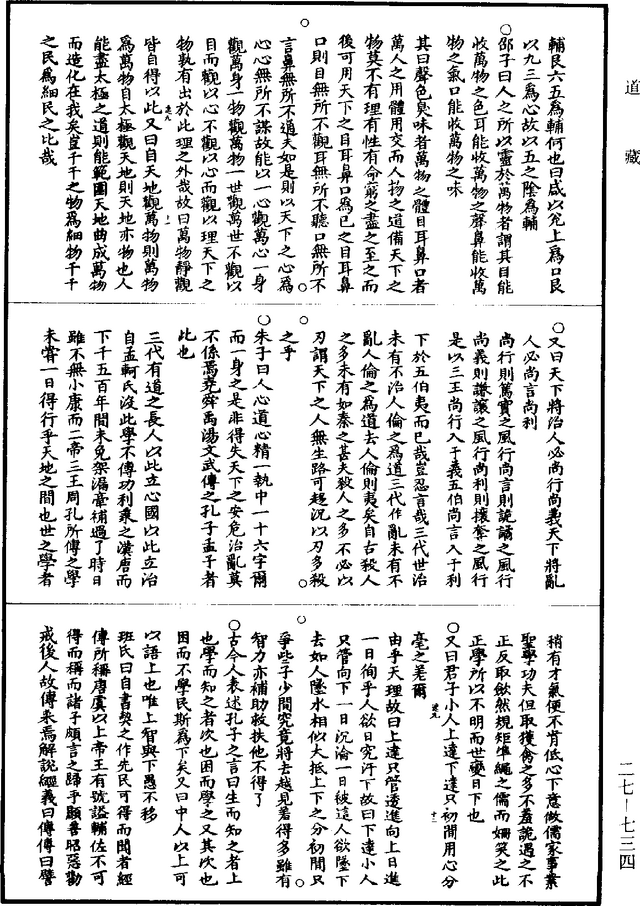 道藏
輔艮六五為輔何也曰咸以兊上為口艮
以九三為心故以五之陰為輔
○邵子曰人之所以靈於萬物者謂其目能
收萬物之色耳能收萬物之聲鼻能收萬
物之氣口能收萬物之味
其曰聲色臭味者萬物之體目耳鼻口者
萬人之用體用交而人物之道備天下之
物莫不有理有性有命窮之盡之至之而
後可用天下之目耳鼻口為己之目耳鼻
口則目無所不觀耳無所不聽口無所不
言鼻無所不道夫如是則以天下之心為
心心無所不謀故能以一心觀萬心一身
觀萬身一物觀萬物一世觀萬世不觀以
目而觀以心不觀以心而觀以理天下之
物孰有出於此理之外哉故曰萬物靜觀
皆自得以此又曰自天地觀萬物則萬物
為萬物自太極觀天地則天地亦物也人
能盡太極之道則能範圍天地曲成萬物
而造化在我矣豈千千之物為細物千千
之民為細民之比哉
○又曰天下將治人必尚行尚義天下將亂
人必尚言尚利
尚行則篤實之風行尚言則詭譎之風行
尚義則謙讓之風行尚利則攘奪之風行
是以三王尚行入于義五伯尚言入于利
下於五伯夷而已哉豈忍言哉三代世治
未有不治人倫之為道三代作亂未有不
亂人倫之為道去人倫則夷矣自古殺人
之多未有如秦之甚夫殺人之多不必以
刃謂天下之人無生路可趨況以刃多殺
之乎
○朱子曰人心道心精一執中一十六字爾
而一身之是非得失天下之安危治亂莫
不係焉堯舜禹湯文武傳之孔子孟子者
此也
三代有道之長人以此立心國以此立治
自孟軻氏沒此學不傳功利乘之漢唐而
下千五百年間未免架漏牽補過了時日
雖不無小康而二帝三王周孔所傳之學
未嘗一日得行乎天地之間也世之學者
稍有才氣便不肯低心下意做儒家事業
聖學功夫但取獲禽之多不羞詭遇之不
正反取歛然規矩準繩之儒而姍笑之此
正學所以不明而世變日下也
○又曰君子小人上達下達只初間用心分
毫之差爾
由乎天理故曰上達只管透進向上日進
一日徇乎人欲日究汙下故曰下達小人
只管向下一日沉淪一日被這人欲墜下
去如人墜水相似大抵上下之分初間只
爭此三子少間究竟將去越見著得多雖有
智力亦補助救扶他不得了
○古今人表述孔子之言曰生而知之者上
也學而知之者次也困而學之又其次也
困而不學民斯為下矣又曰中人以上可
以語上也唯上智與下愚不移
班氏曰自書契之作先民可得而聞者經
傳所稱唐虞以上帝王有號謚輔佐不可
得而稱而諸子頗言之歸乎顯善昭惡勸
戒後人故傳朵焉解說經義曰傳傳曰譬
二七—七三四